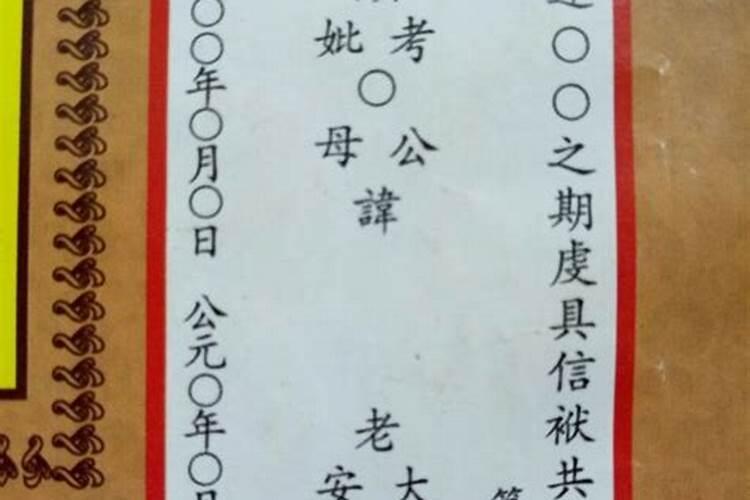 〇〇之期虔具信袱共
考
妣
〇
公
母
諱
老
大
安
〇〇年〇月〇日 公元〇年〇月